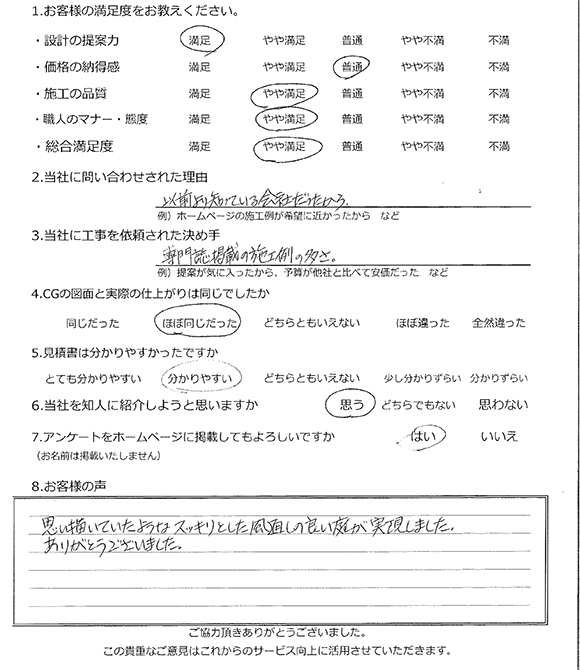 1.お客様の満足度をお教えください。
・設計の提案力 満足 やや満足 普通 やや不満 不満
・価格の納得感 満足 やや満足 普通 やや不満 不満
・施工の品質 満足 やや満足 普通 やや不満 不満
・職人のマナー・態度 満足 やや満足 普通 やや不満 不満
・総合満足度 満足 やや満足 普通 やや不満 不満
2.当社に問い合わせされた理由
以前より知っている会社だったから。
例）ホームページの施工例が希望に近かったから など
3.当社に工事を依頼された決め手
専門誌掲載の施工例の多さ。
例）提案が気に入ったから、予算が他社と比べて安価だった など
4.CGの図面と実際の仕上がりは同じでしたか
同じだった ほぼ同じだった どちらともいえない ほぼ違った 全然違った
5.見積書は分かりやすかったですか
とても分かりやすい 分かりやすい どちらともいえない 少し分かりずらい 分かりずらい
6.当社を知人に紹介しようと思いますか 思う どちらでもない 思わない
7.アンケートをホームページに掲載してもよろしいですか はい いいえ
（お名前は掲載いたしません）
8.お客様の声
思い描いていたようなスッキリとした風通しの良い庭が実現しました。
ありがとうございました。
ご協力頂きありがとうございました。
この貴重なご意見はこれからのサービス向上に活用させていただきます。